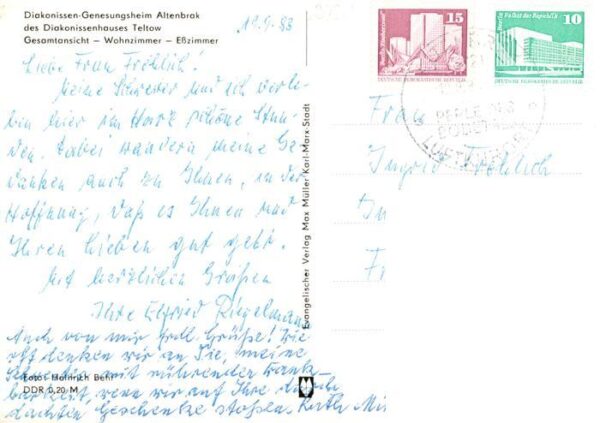 Diakonissen-Genesungsheim Altenbrak
des Diakonissenhauses Teltow
Gesamtansicht – Wohnzimmer – Eßzimmer
19.9.83
Liebe Frau Fröhlich!
Meine Schwester und ich verle-
ben hier im Harz schöne Stun-
den. Dabei wandern meine Ge-
danken auch zu Ihnen, in der
Hoffnung, daß es Ihnen und
Ihren Lieben gut geht.
Mit herzlichen Grüßen
Ihre Elfried Riegelmann
Auch von mir frdl. Grüße! Wie
oft denken wir an Sie, meine
Schwester mit rührender Dank-
barkeit, wenn wir auf Ihre durch-
dachten Geschenke stoßen.
Foto: Heinrich Behr
DDR 0,20 M
Evangelischer Verlag Max Müller Karl-Marx-Stadt
15
DEUTSCHE DEMOKRATISCHE REPUBLIK
Berlin, Palast der Republik
10
DEUTSCHE DEMOKRATISCHE REPUBLIK
PERLE DES
BODETALES
LUFTKURORT
Frau
Ingrid Fröhlich